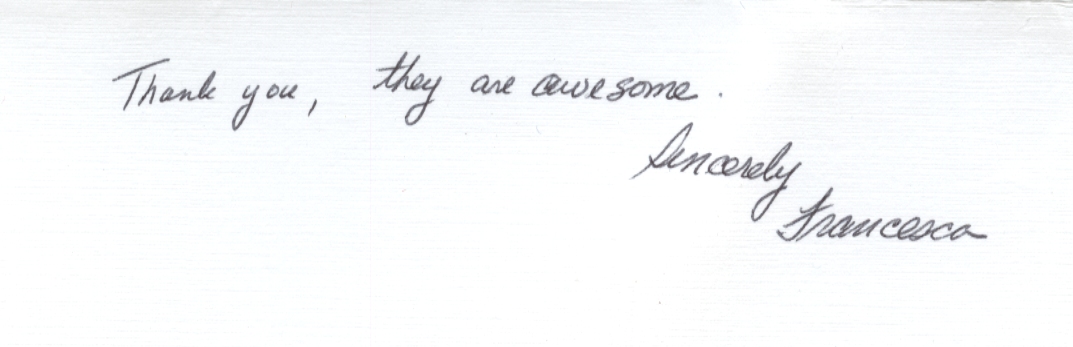 Thank you, they are awesome.
Sincerely
Francesca